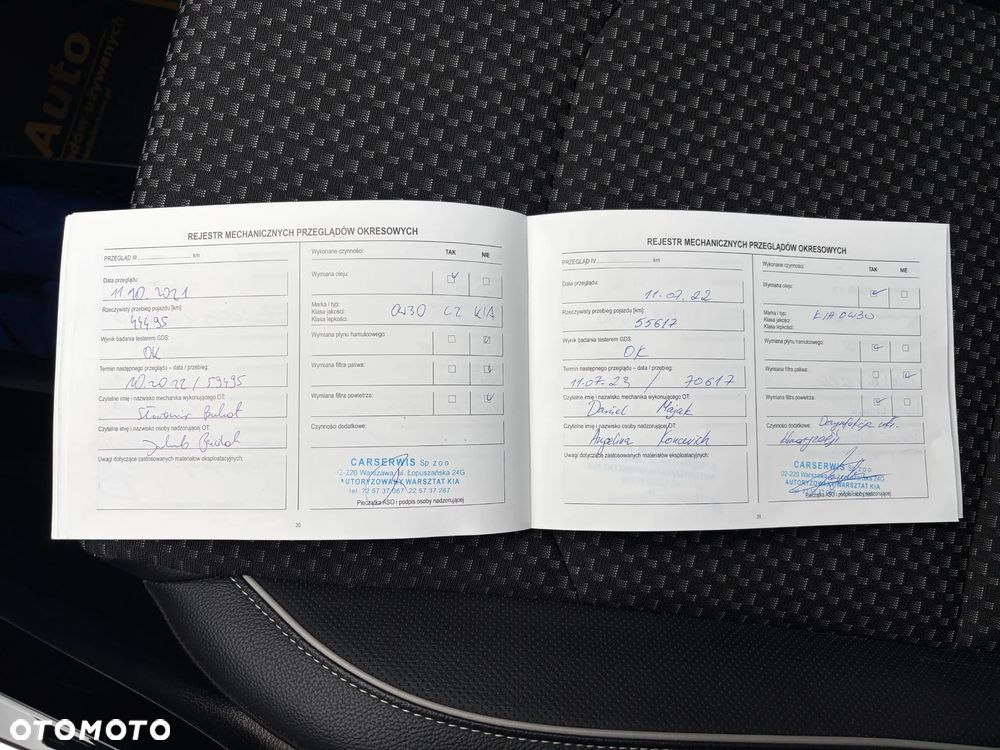 Auto
używanych
REJESTR MECHANICZNYCH PRZEGLĄDÓW OKRESOWYCH
PRZEGLĄD III km
Data przeglądu:
11.10.2021
Rzeczywisty przebieg pojazdu [km]:
44495
Wynik badania testerem GDS:
OK
Termin następnego przeglądu – data / przebieg:
10.2022 / 59495
Czytelne imię i nazwisko mechanika wykonującego OT:
Sławomir
Czytelne imię i nazwisko osoby nadzorującej OT:
Jakub
Uwagi dotyczące zastosowanych materiałów eksploatacyjnych:
Wykonane czynności: TAK NIE
Wymiana oleju:
Marka / typ:
Klasa jakości: 0W30 C2 KIA
Klasa lepkości:
Wymiana płynu hamulcowego:
Wymiana filtra paliwa:
Wymiana filtra powietrza:
Czynności dodatkowe:
CARSERWIS Sp z o o
02-220 Warszawa, ul. Łopuszańska 24G
AUTORYZOWANY WARSZTAT KIA
tel. 22 57 37 267, 22 57 37 267
Pieczątka ASO i podpis osoby nadzorującej
30
REJESTR MECHANICZNYCH PRZEGLĄDÓW OKRESOWYCH
PRZEGLĄD IV km
Data przeglądu:
11.07.22
Rzeczywisty przebieg pojazdu [km]:
55617
Wynik badania testerem GDS:
OK
Termin następnego przeglądu – data / przebieg:
11.07.23 / 70617
Czytelne imię i nazwisko mechanika wykonującego OT:
Daniel Majak
Czytelne imię i nazwisko osoby nadzorującej OT:
Angelina Koncevich
Uwagi dotyczące zastosowanych materiałów eksploatacyjnych:
Wykonane czynności: TAK NIE
Wymiana oleju:
Marka / typ:
Klasa jakości: KIA 0W30
Klasa lepkości:
Wymiana płynu hamulcowego:
Wymiana filtra paliwa:
Wymiana filtra powietrza:
Czynności dodatkowe: Dezynfekcja
klimatyzacji
CARSERWIS Sp z o o
02-220 Warszawa, Łopuszańska 24G
AUTORYZOWANY WARSZTAT KIA
Pieczątka ASO i podpis osoby nadzorującej
31
OTOMOTO